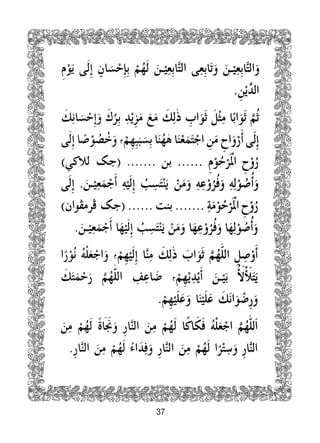 وَالتَّابِعِيْنَ وَتَابِعِى التَّابِعِيْنَ لَهُمْ بِإِحْسَانٍ إِلَى يَوْمِ
الدِّيْنِ.
ثُمَّ ثَوَابًا مِثْلَ ثَوَابِ ذٰلِكَ مَعَ مَزِيْدِ بِرِّكَ وَإِحْسَانِكَ
إِلَى أَرْوَاحِ مَنِ اجْتَمَعْنَا هَهُنَا بِسَبَبِهِمْ، وَخُصُوْصًا إِلَى
رُوْحِ الْمَرْحُوْمِ ...... بن ....... (جک للاكي)
وَأُصُوْلِهِ وَفُرُوْعِهِ وَمَنْ يَنْتَسِبُ إِلَيْهِ أَجْمَعِيْنَ. إِلَى
رُوْحِ الْمَرْحُوْمَةِ ....... بنت ...... (جک ڤرمڤوان)
وَأُصُوْلِهَا وَفُرُوْعِهَا وَمَنْ يَنْتَسِبُ إِلَيْهَا أَجْمَعِيْنَ.
أَوْصِلِ اللّٰهُمَّ ثَوَابَ ذٰلِكَ مِنَّا إِلَيْهِمْ، وَاجْعَلْهُ نُوْرًا
يَتَلَأْلَأُ بَيْنَ أَيْدِيْهِمْ، ضَاعِفِ اللّٰهُمَّ رَحْمَتَكَ
وَرِضْوَانَكَ عَلَيْنَا وَعَلَيْهِمْ.
اَللّٰهُمَّ اجْعَلْهُ فَكَاكًا لَهُمْ مِنَ النَّارِ وَنَجَاةً لَهُمْ مِنَ
النَّارِ وَسِتْرًا لَهُمْ مِنَ النَّارِ وَفِدَاءً لَهُمْ مِنَ النَّارِ.
37